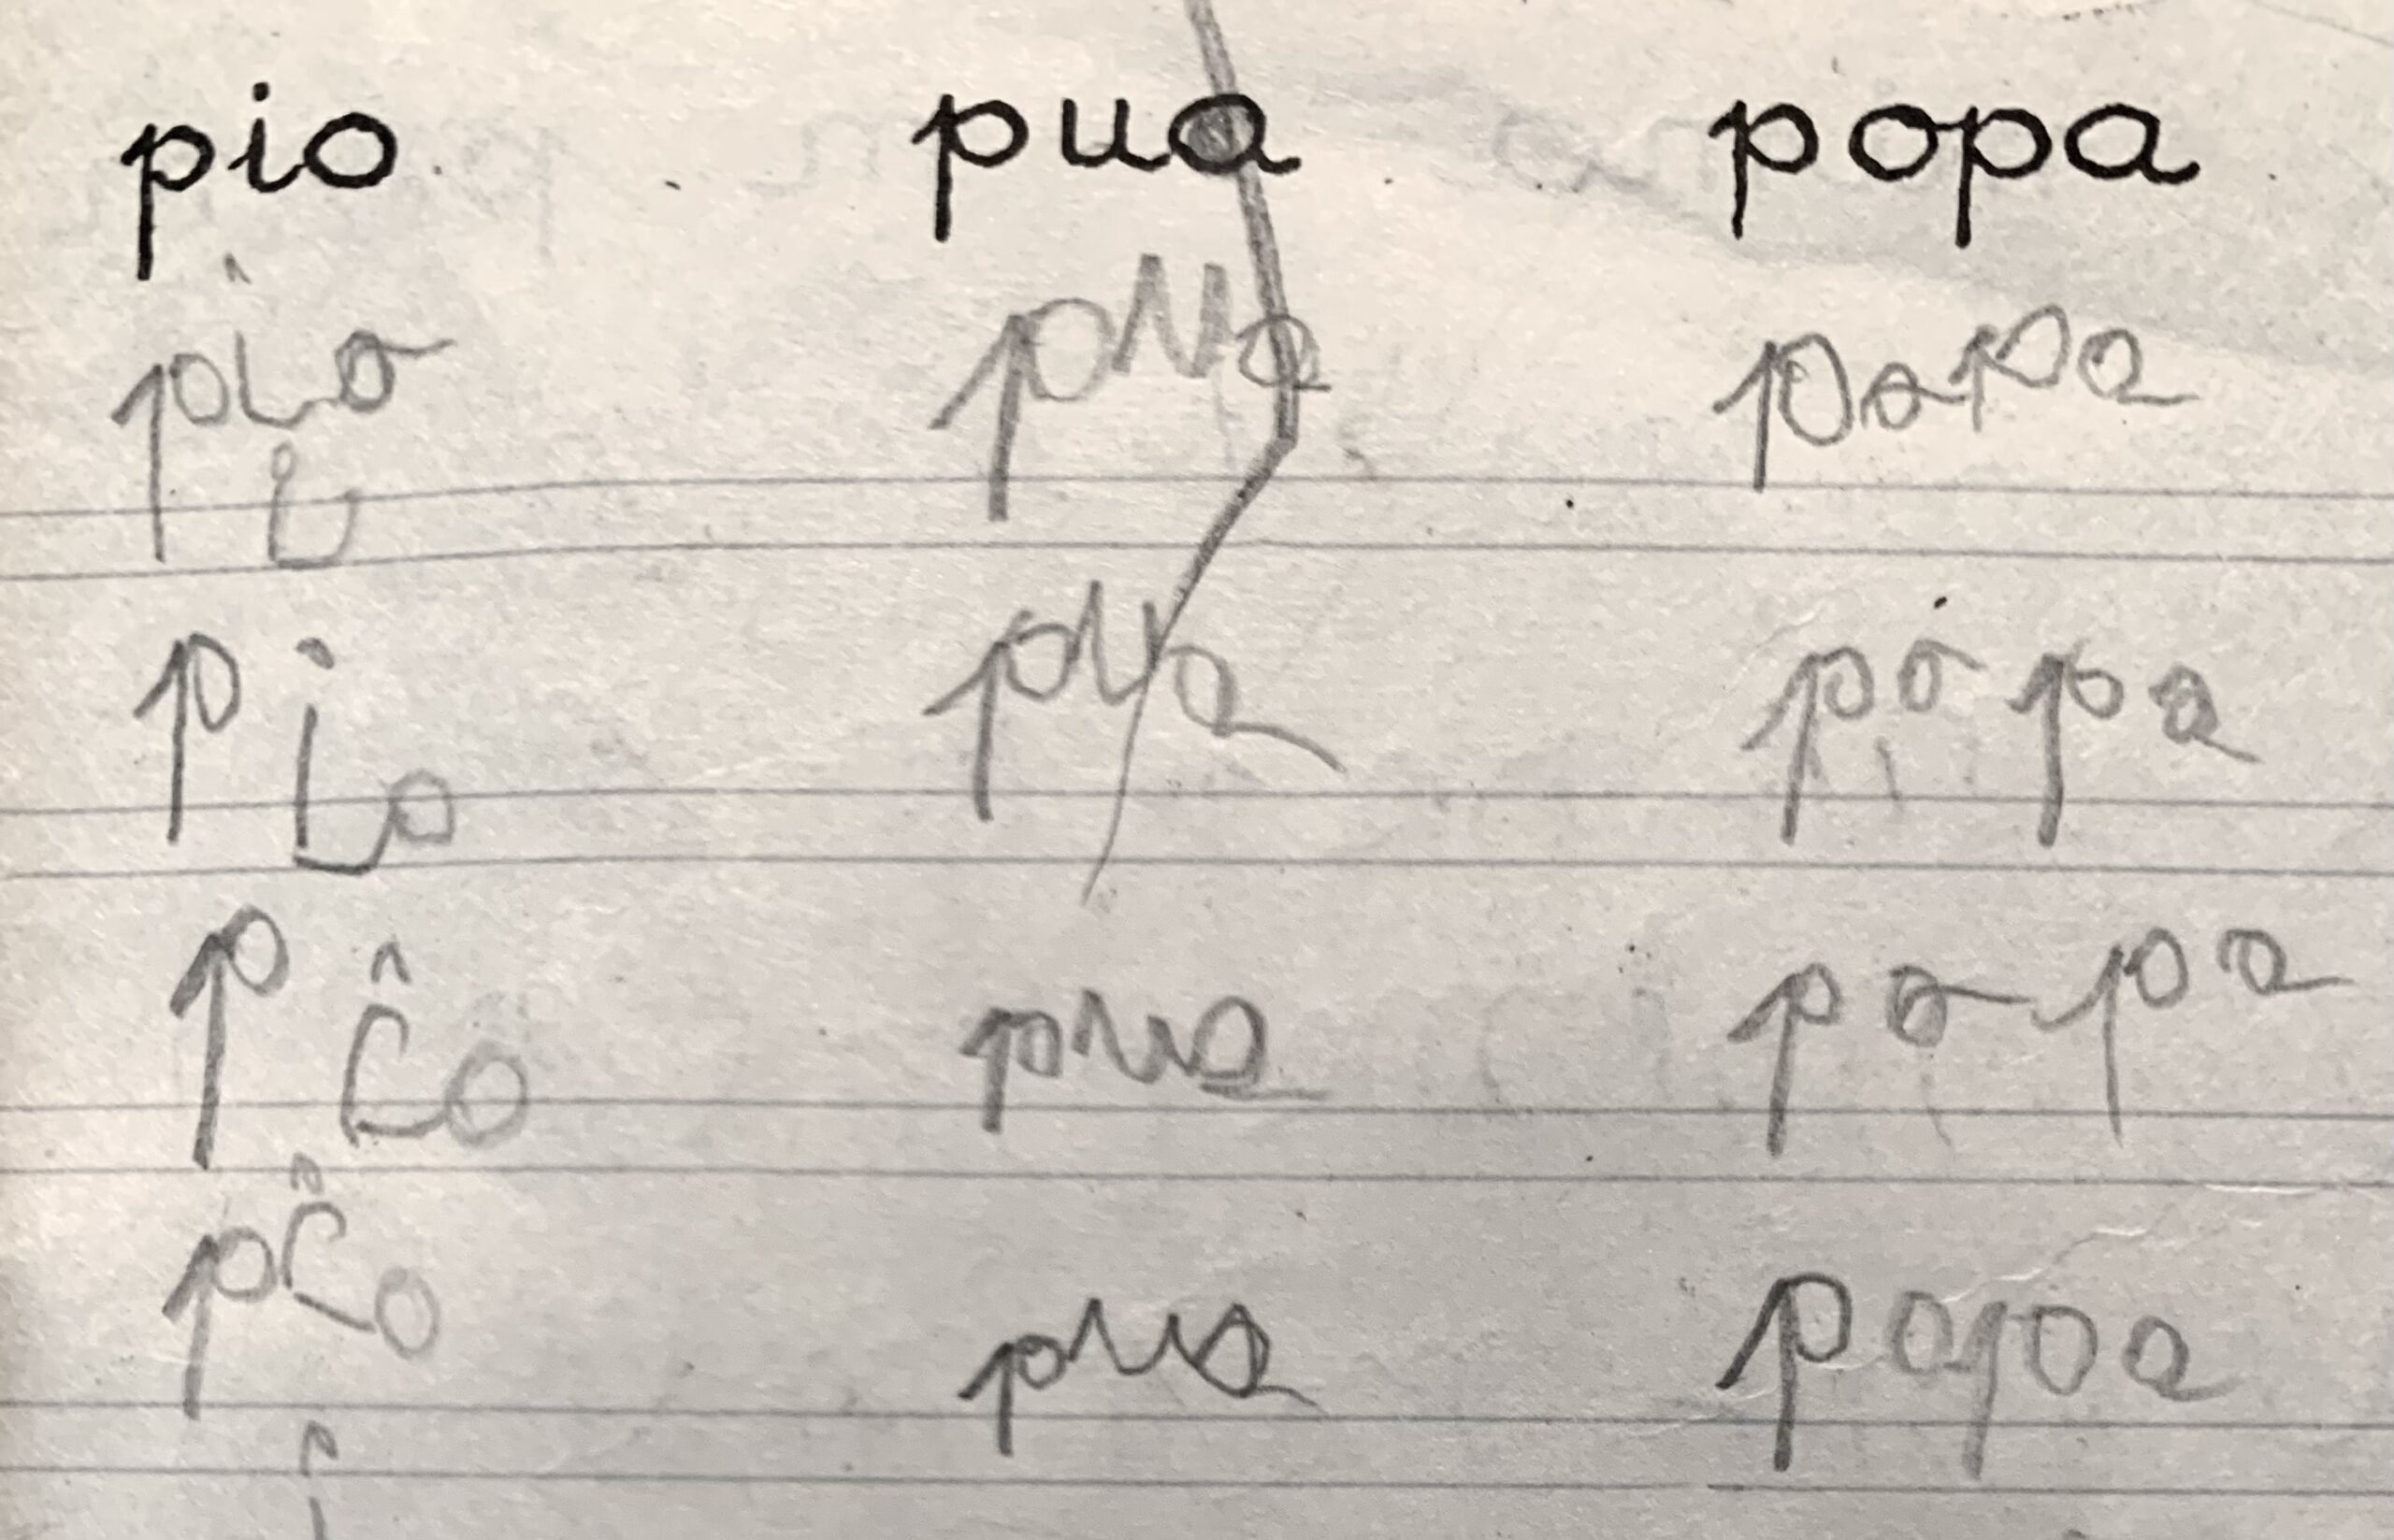 pio pua popa
pio pua popa
pio pua popa
pio pua popa
pio pua popa